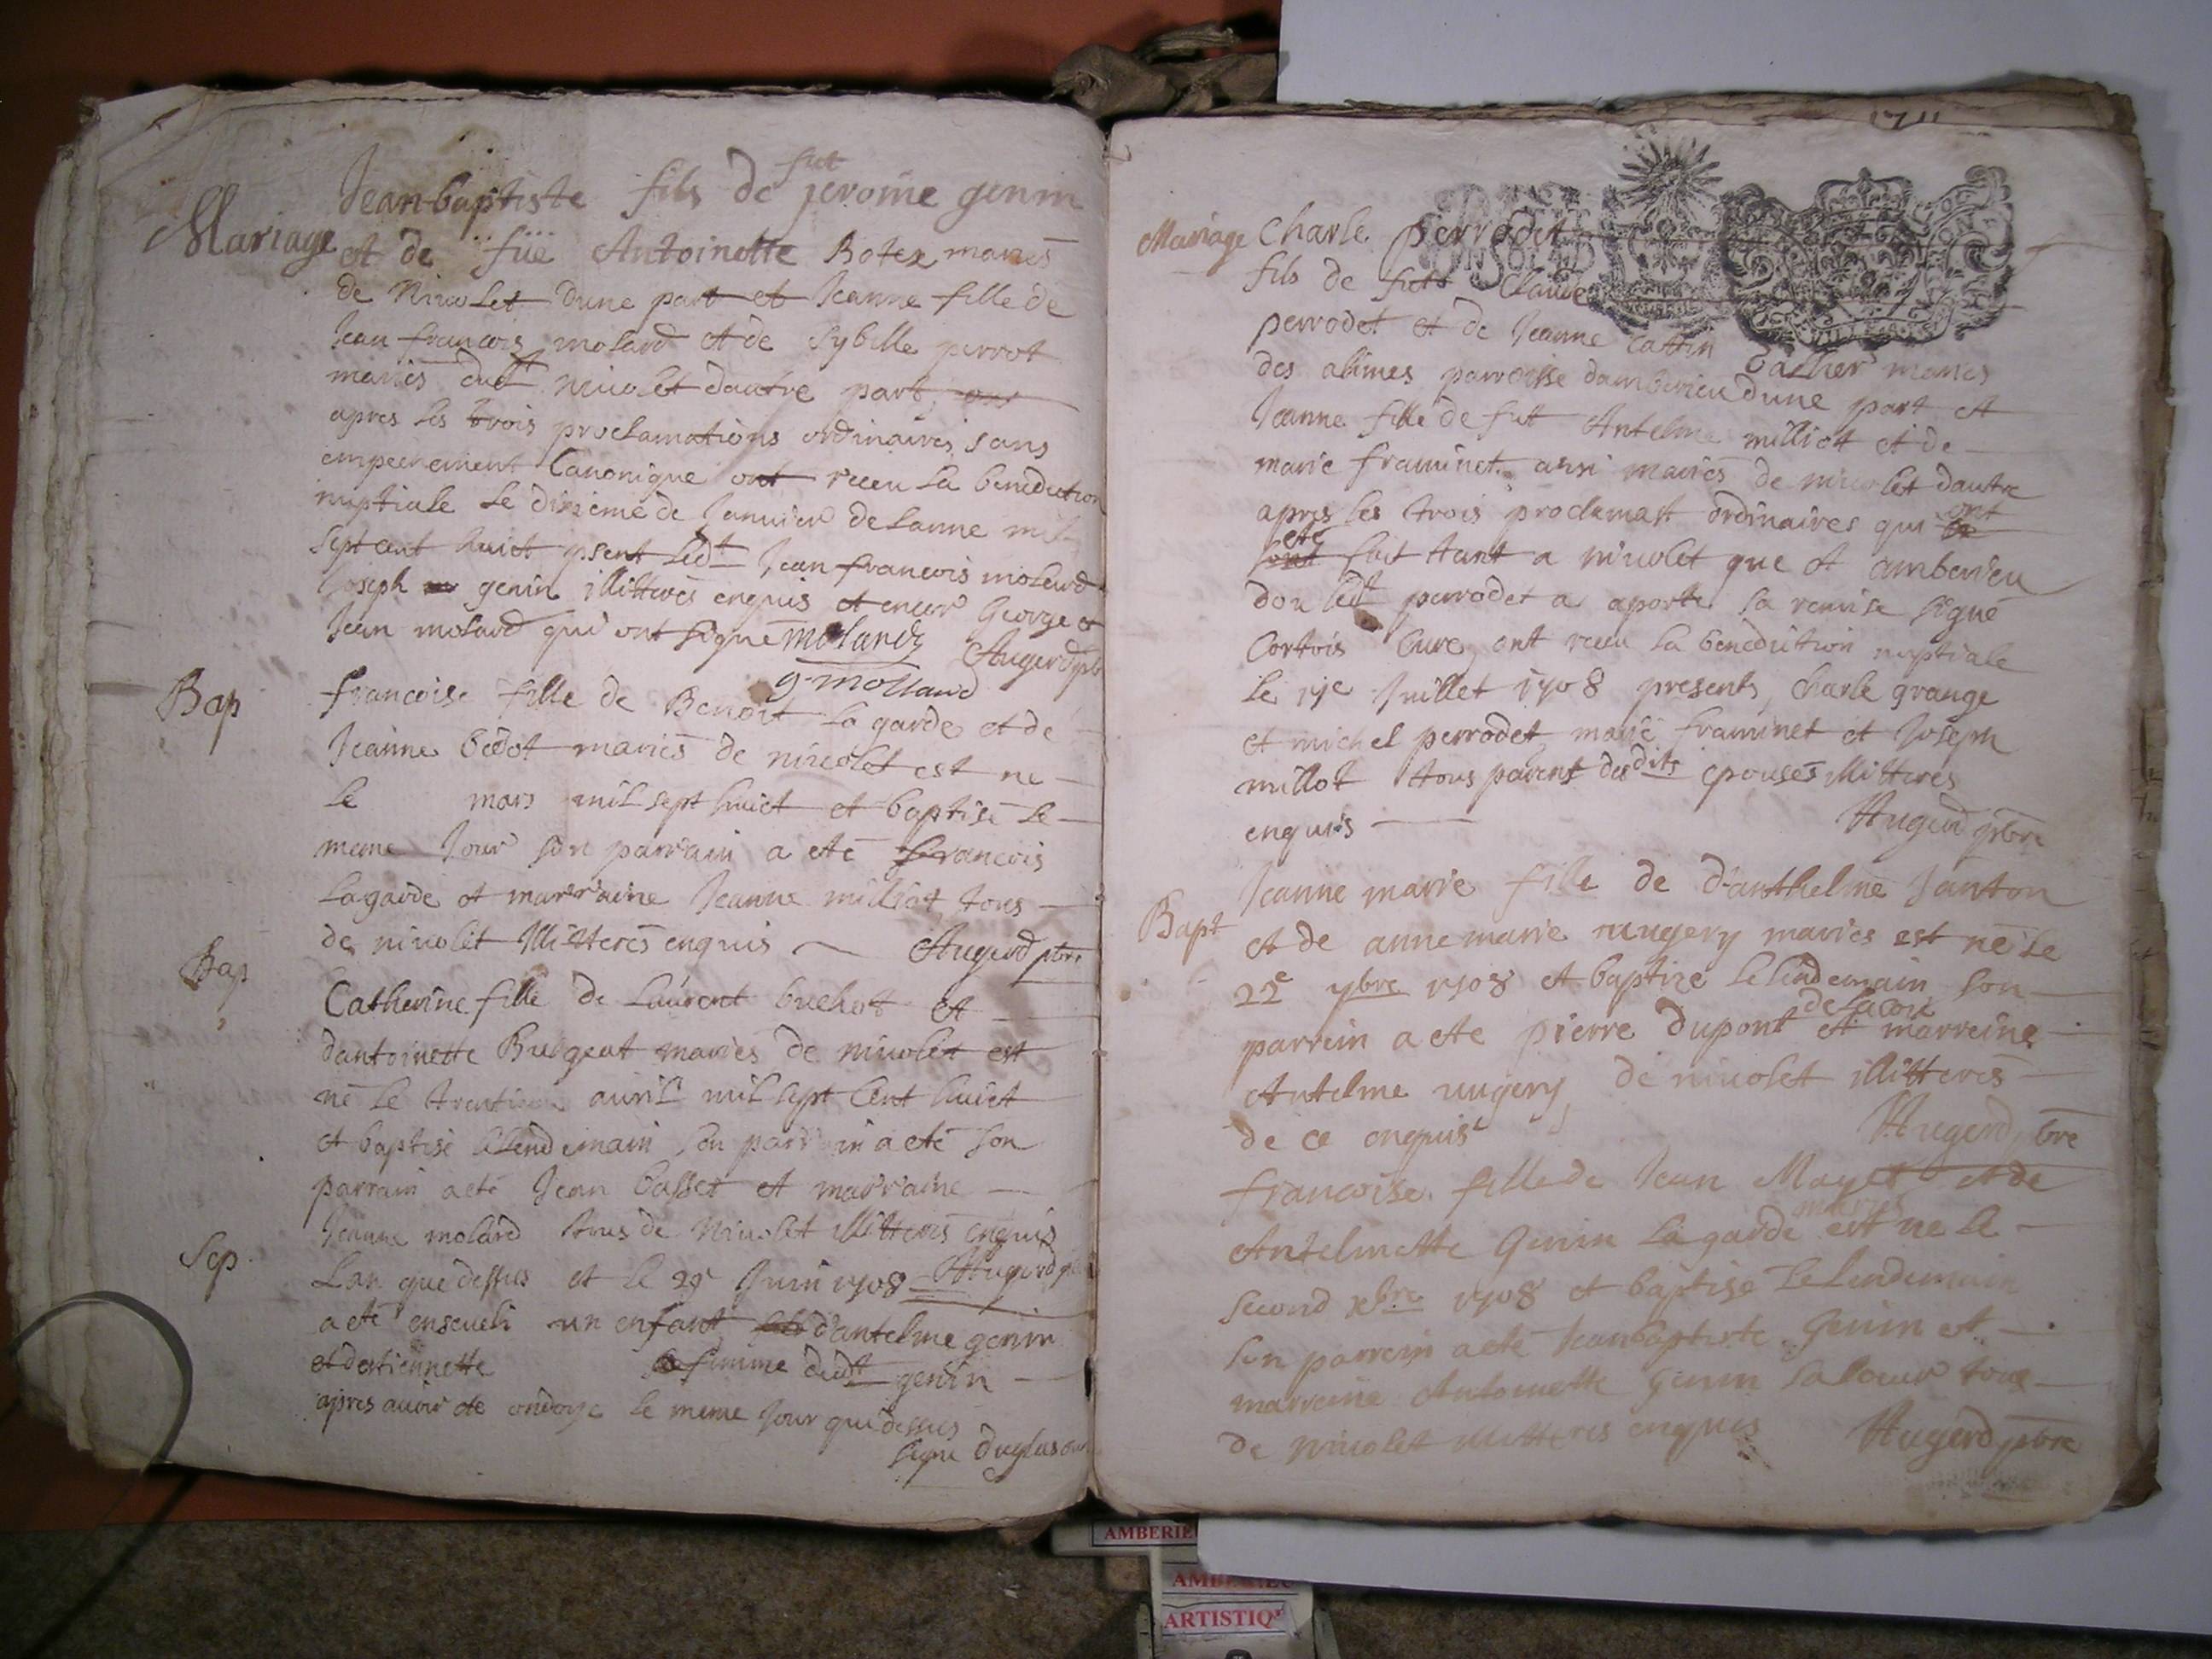 Mariage
Jean baptiste fils de fut jerome genin
et de füe Antoinette Botex maries
de Nivolet dune part et Jeanne fille de
Jean francois molard et de Sybille perrot
maries dudt nivolet dautre part,
apres les trois proclamations ordinaires sans
empechement Canonique ont receu la benediction
nuptiale le dixieme de Janvier de lanne mil
sept cent huict psent ledt Jean francois molard
Joseph genin illitteres enquis et encor George et
Jean molard qui ont signe molard Augerd pbr
g. mollard
Bap
francoise fille de Benoit la garde et de
Jeanne bodot maries de nivolet est ne
le mars mil sept huict et baptisé le
meme Jour son parrain a ete francois
lagarde et marraine Jeanne milliat tous
de nivolet illitteres enquis Augerd pbre
Bap
Catherine fille de laurent bochot et
dantoinette Brugeat maries de nivolet est
né le trentieme avril mil sept Cent huict
et baptisé lelendemain son parrain a eté son
parrain a eté Jean basset et marraine
Jeanne molard tous de Nivolet illitteres enquis
Augerd pbr
Sep.
Lan que dessus et le 29e Juin 1708
a eté enseveli un enfant d'antelme genin
et destiennette femme dudt genin
apres avoir ete ondoye le meme Jour que dessus
signe
1711
Mariage
Charle perrodet
fils de fut Claude
perrodet et de Jeanne Cattin bacher maries
des alimes parroisse damberieu dune part et
Jeanne fille de fut Antelme milliat et de
marie framinet aussi maries de nivolet dautre
apres les trois proclamat ordinaires qui ont
eté fait tant a nivolet que et amberieu
dou ledt perrodet a aporté sa remise signé
Cortois Curé, ont receu la benediction nuptiale
le Juillet 1708 presents, charle grange
et michel perrodet, marie framinet et Joseph
millot tous parent desdits epouses illitteres
enquis
Augerd pbre
Bapt
Jeanne marie fille de d'anthelme Janton
et de anne marie rugery maries est né le
22e 7bre 1708 et baptize lelendemain son
parrein a ete pierre dupont et marreine
Antelme rugery de nivolet illitteres
de ce enquis
Augerd pbre
francoise fille de Jean Mayet et de
maries
Antelmette Genin la garde est ne le
second xbre 1708 et baptisé lelendemain
son parrein a eté Jean baptiste Genin et
marreine Antoinette Genin sa soeur tous
de Nivolet illitteres enquis Augerd pbre
AMBERIE
ARTISTIQ